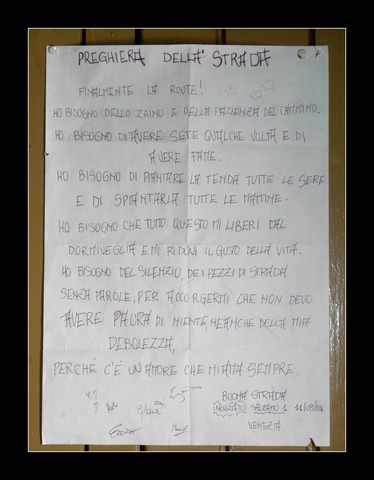 PREGHIERA DELLA STRADA
FINALMENTE LA ROUTE!
HO BISOGNO DELLO ZAINO E DELLA PAZIENZA DEL CAMMINO.
HO BISOGNO DI AVERE SETE QUALCHE VOLTA E DI
AVERE FAME.
HO BISOGNO DI PIANTARE LA TENDA TUTTE LE SERE
E DI SPIANTARLA TUTTE LE MATTINE.
HO BISOGNO CHE TUTTO QUESTO MI LIBERI DAL
DORMIVEGLIA E MI RIDONI IL GUSTO DELLA VITA.
HO BISOGNO DEL SILENZIO, DEI PEZZI DI STRADA
SENZA PAROLE, PER ACCORGERMI CHE NON DEVO
AVERE PAURA DI NIENTE, NEANCHE DELLA MIA
DEBOLEZZA,
PERCHÉ C'È UN AMORE CHE MI AMA SEMPRE.
BUONA STRADA
NOVIZIATO 1 11/08/04
VENEZIA